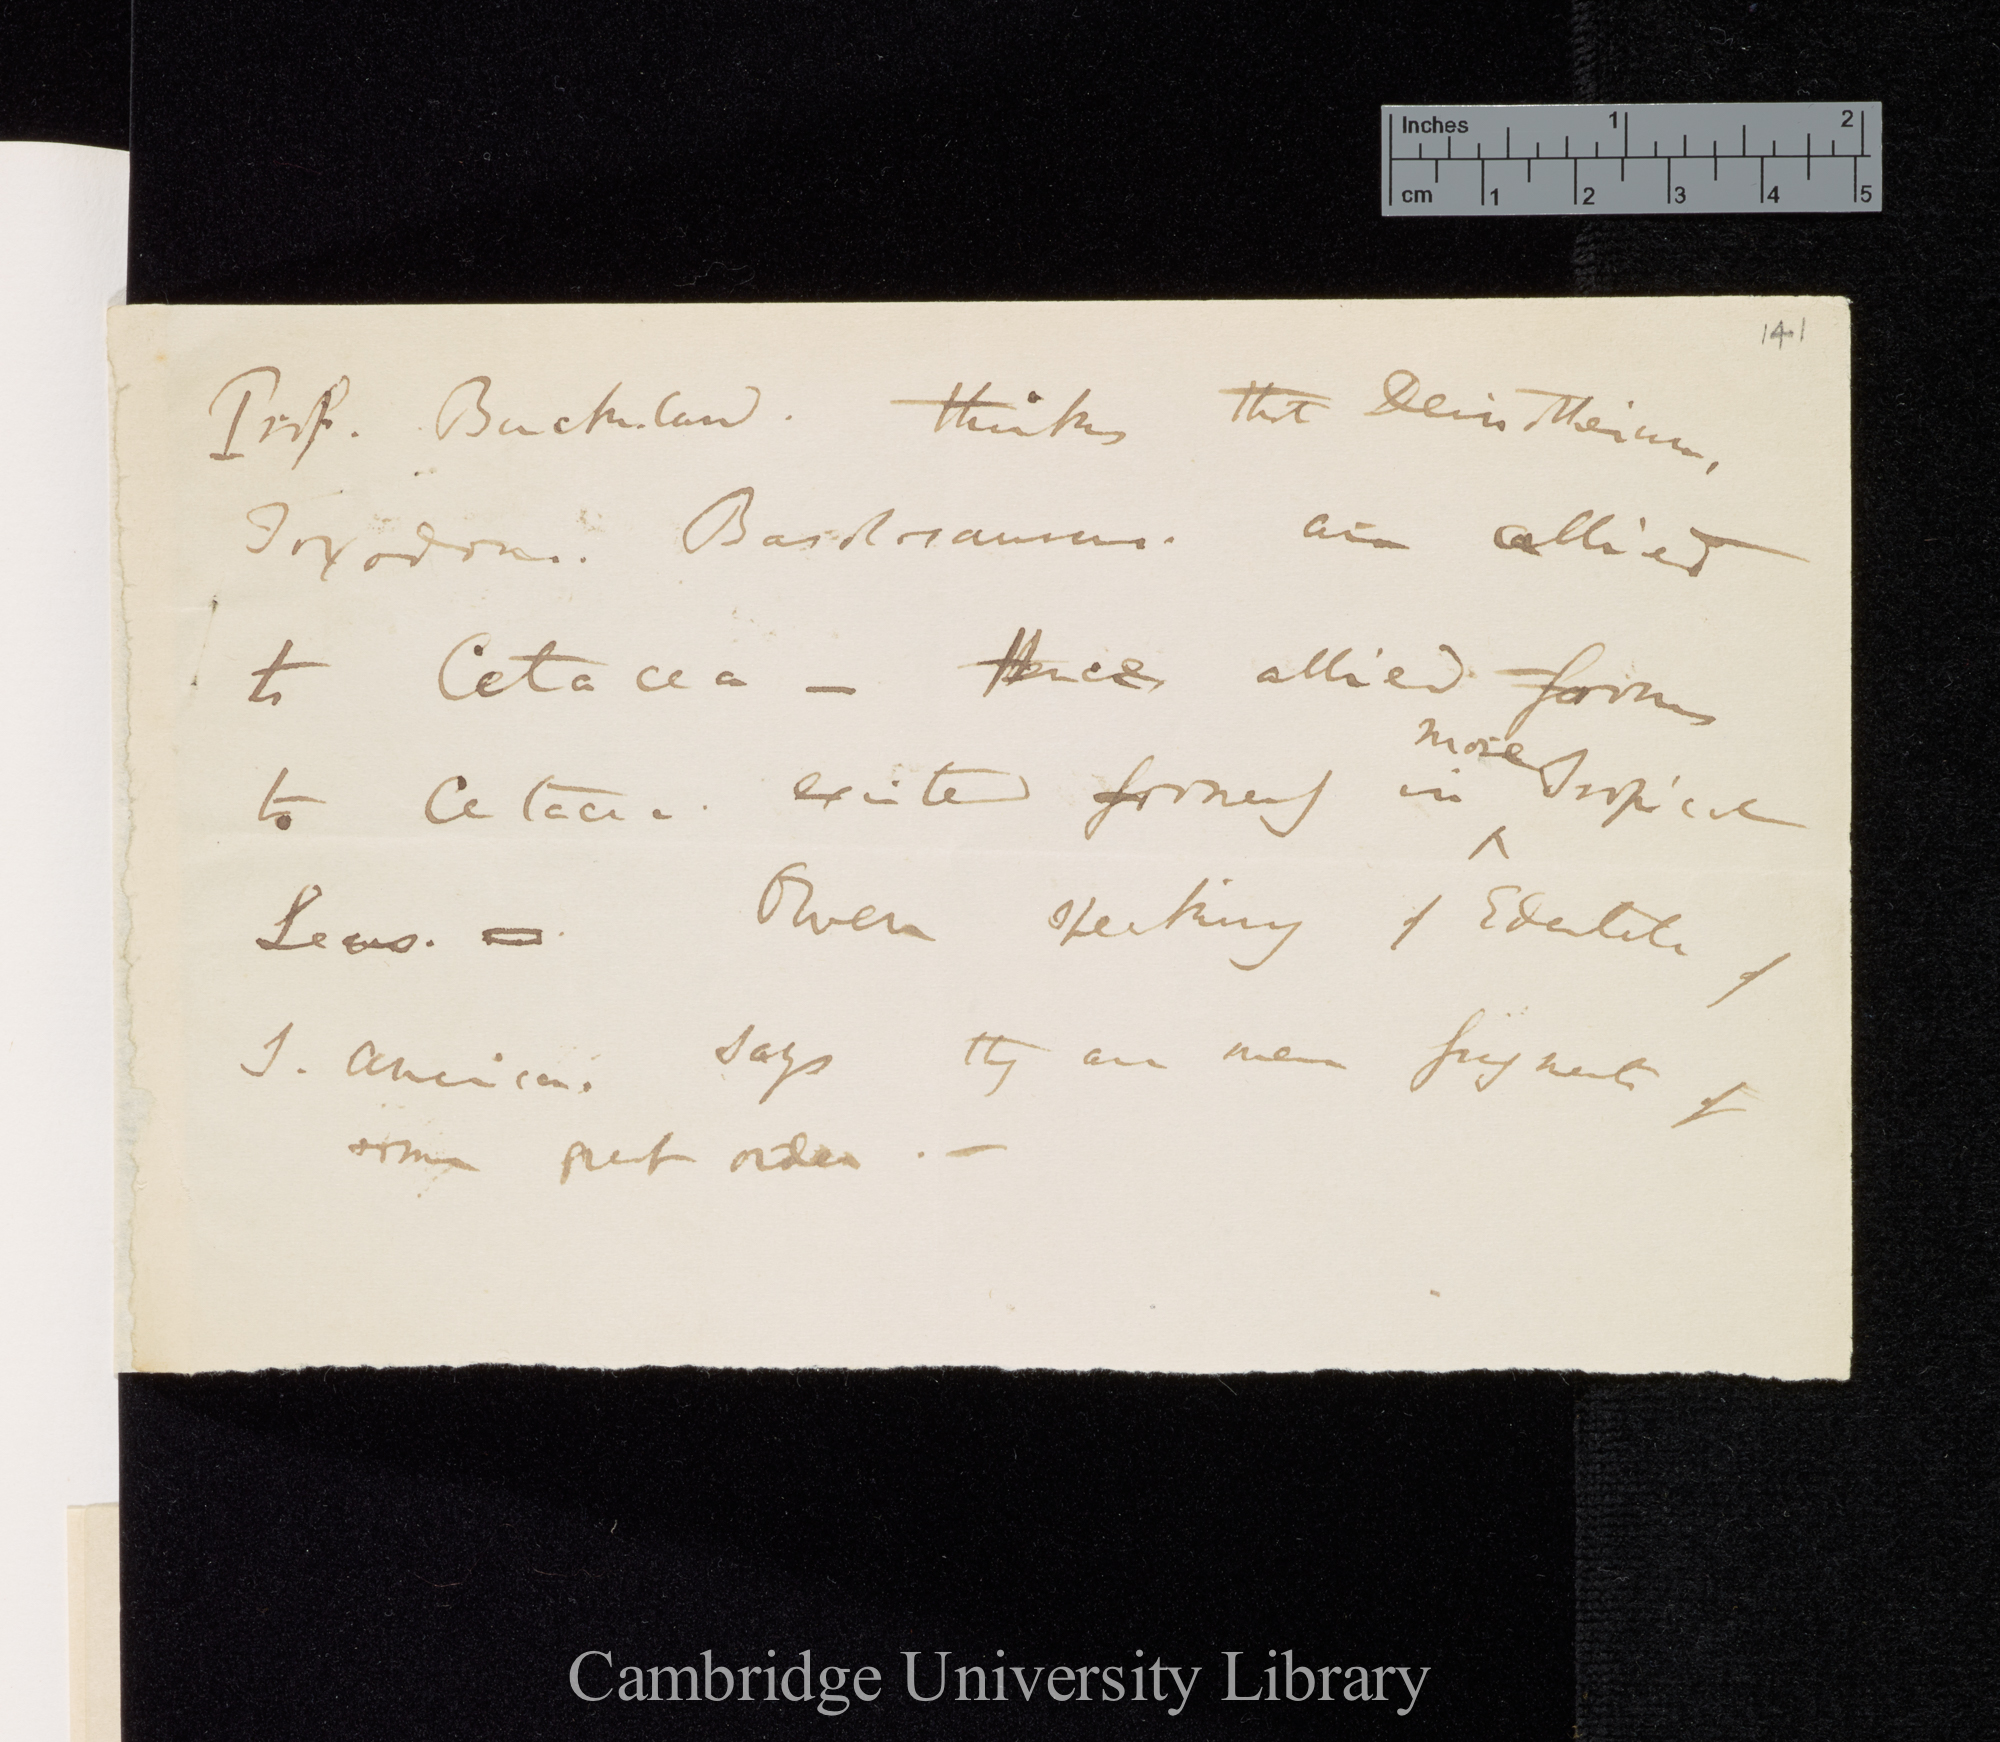 Inches 1 2
cm 1 2 3 4 5
141
Prof. Buckland. thinks that Deinotherium,
Toxodon. Basilosaurus. are allied
to Cetacea — Hence allied forms
to Cetacea. existed formerly in more Tropical
Seas. — Owen speaking of Edentata of
S. America. says they are mere fragments of
some great order. —
Cambridge University Library